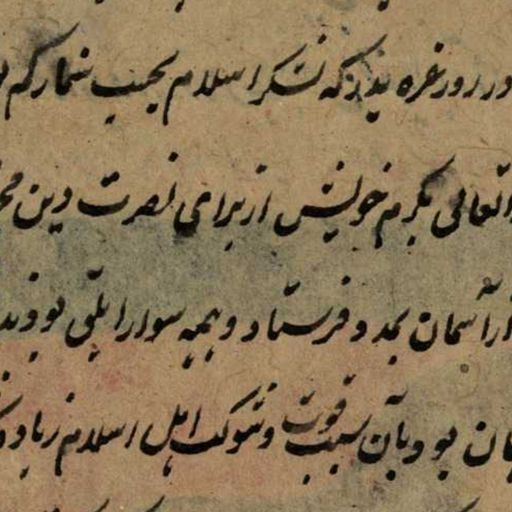 در روز غزوه بدر که لشکر اسلام بحسب شمار کم
تعالی بکرم خویش از برای نصرت دین
از آسمان بمدد فرستاد و همه سوار ابلق بودند
بود و بآن سبب قوت و شوکت اهل اسلام زیاده